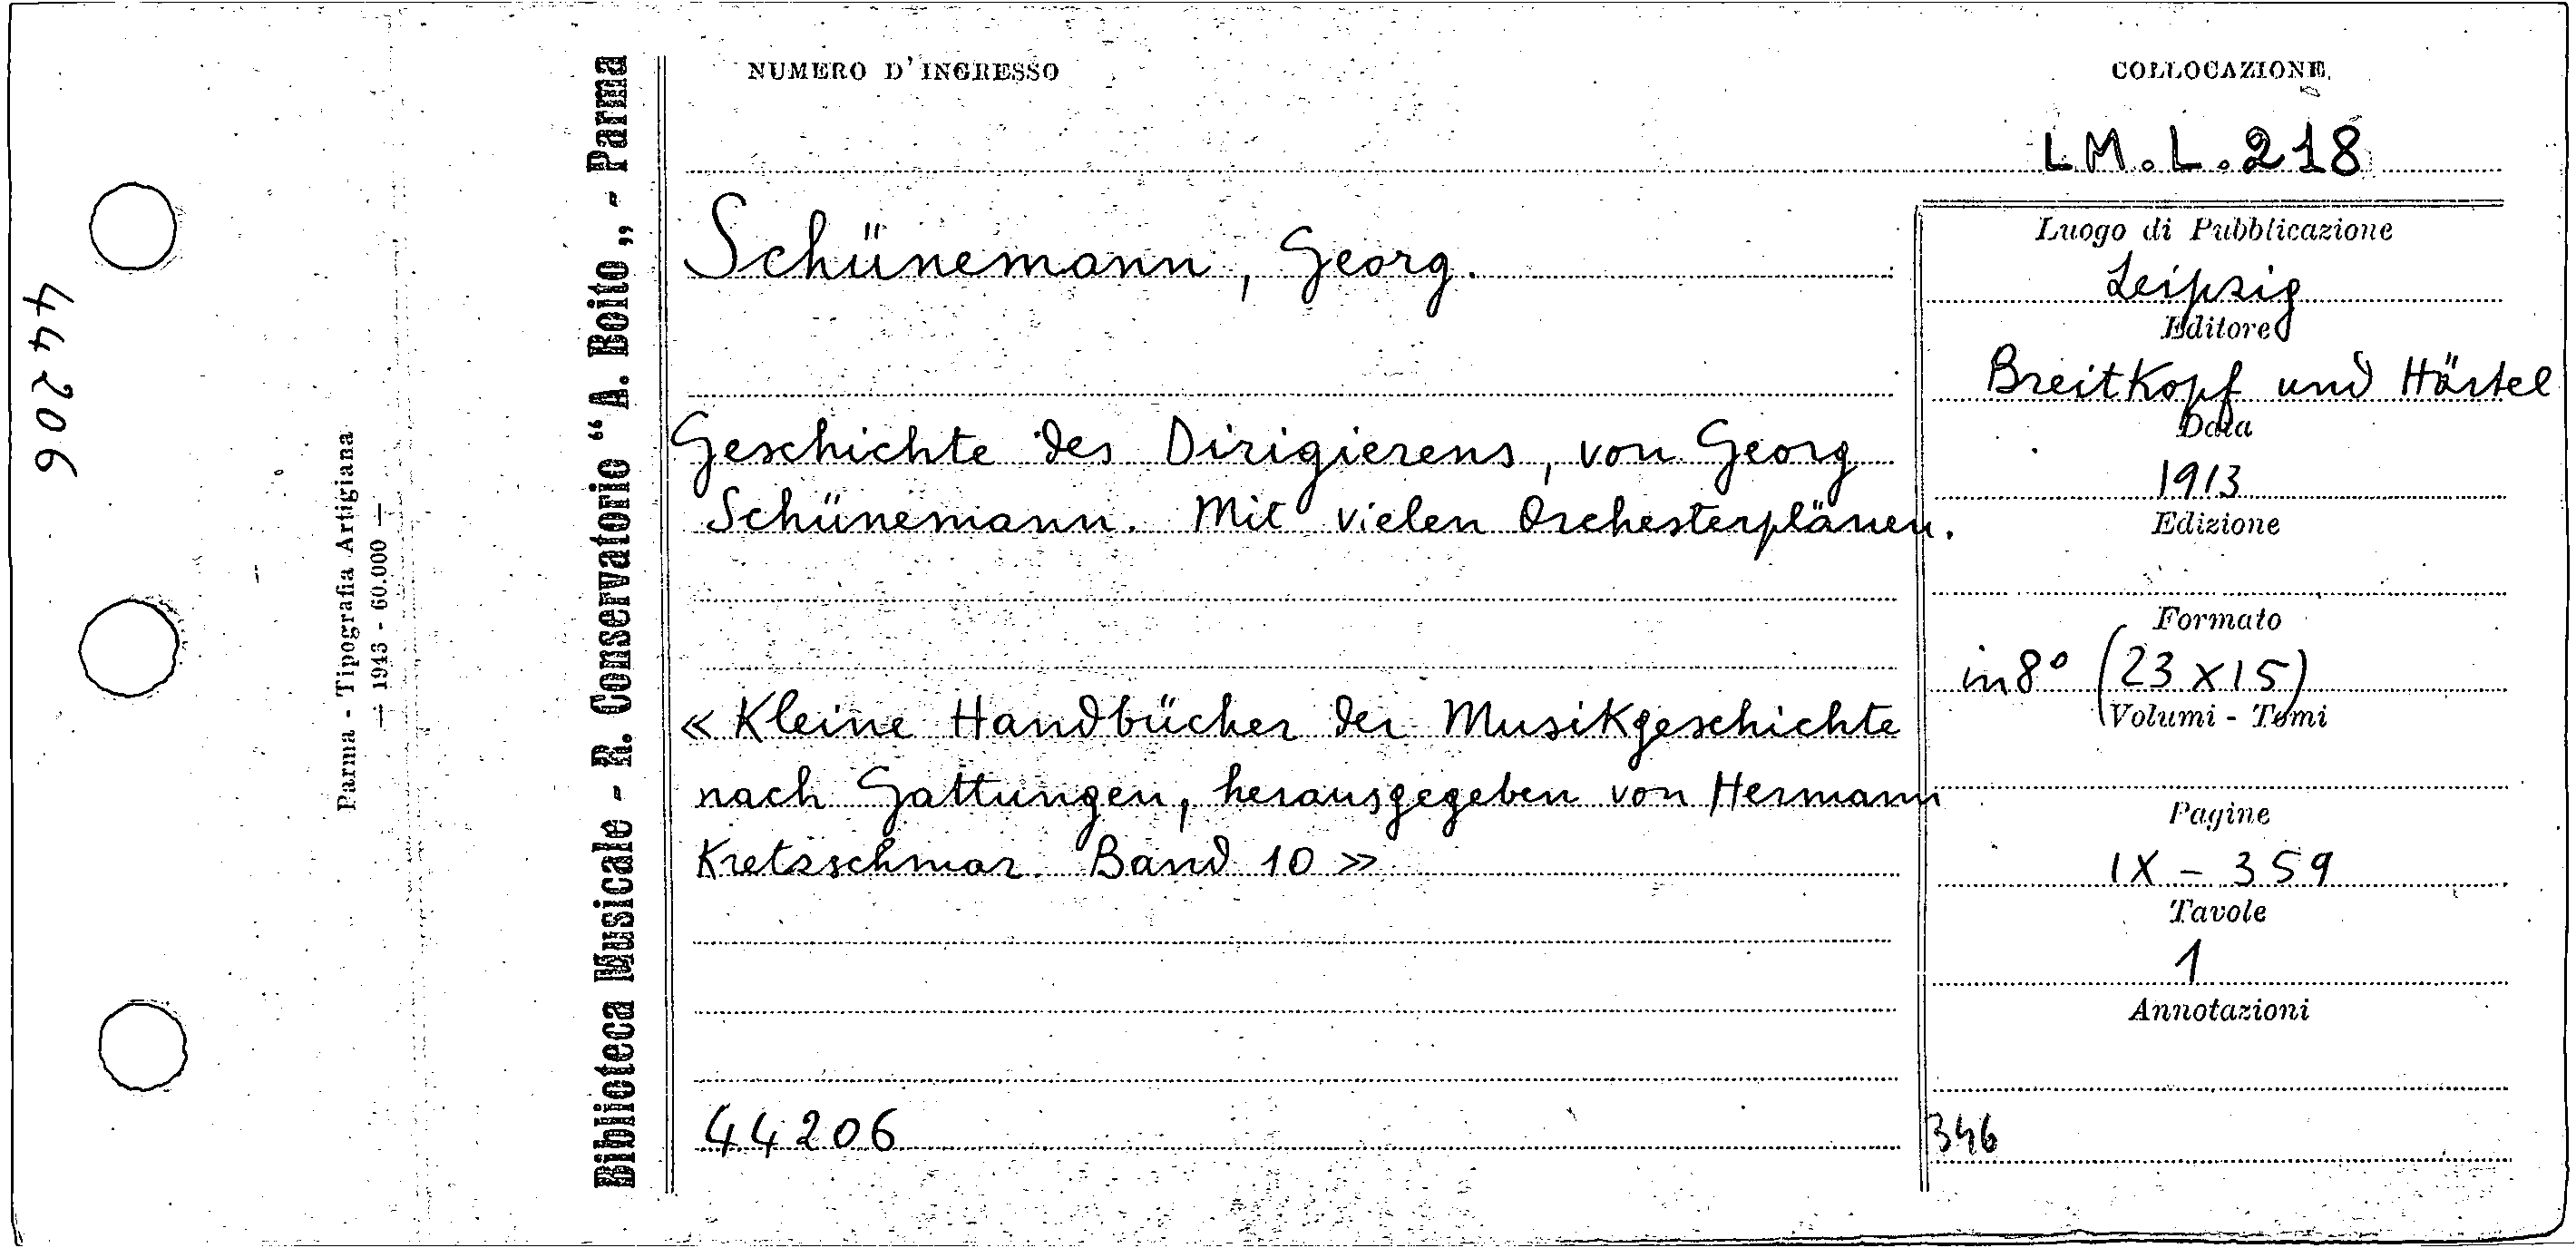 44206
Parma - Tipografia Artigiana
— 1943 - 60.000 —
Biblioteca Musicale - R. Conservatorio “A. Boito„ - Parma
NUMERO D'INGRESSO
COLLOCAZIONE
LM.L.218
Schünemann, Georg.
Geschichte des Dirigierens, von Georg
Schünemann. Mit vielen Orchesterplänen.
« Kleine Handbücher der Musikgeschichte
nach Gattungen, herausgegeben von Hermann
Kretzschmar. Band 10 »
44206
Luogo di Pubblicazione
Leipzig
Editore
Breitkopf und Härtel
Data
1913
Edizione
Formato
in 8° (23 x 15)
Volumi - Tomi
Pagine
IX - 359
Tavole
1
Annotazioni
346